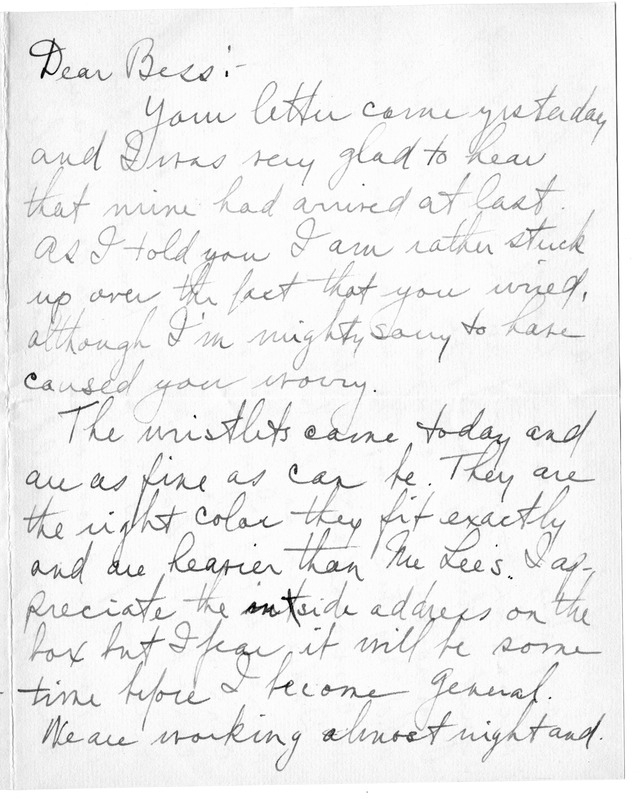 Dear Bess:-
Your letter came yesterday
and I was very glad to hear
that mine had arrived at last.
As I told you I am rather stuck
up over the fact that you wired,
although I'm mighty sorry to have
caused you worry.
The wristlets came today and
are as fine as can be. They are
the right color they fit exactly
and are heavier than Mc Lee's. I ap-
preciate the outside address on the
box but I fear it will be some
time before I become General.
We are working almost night and.